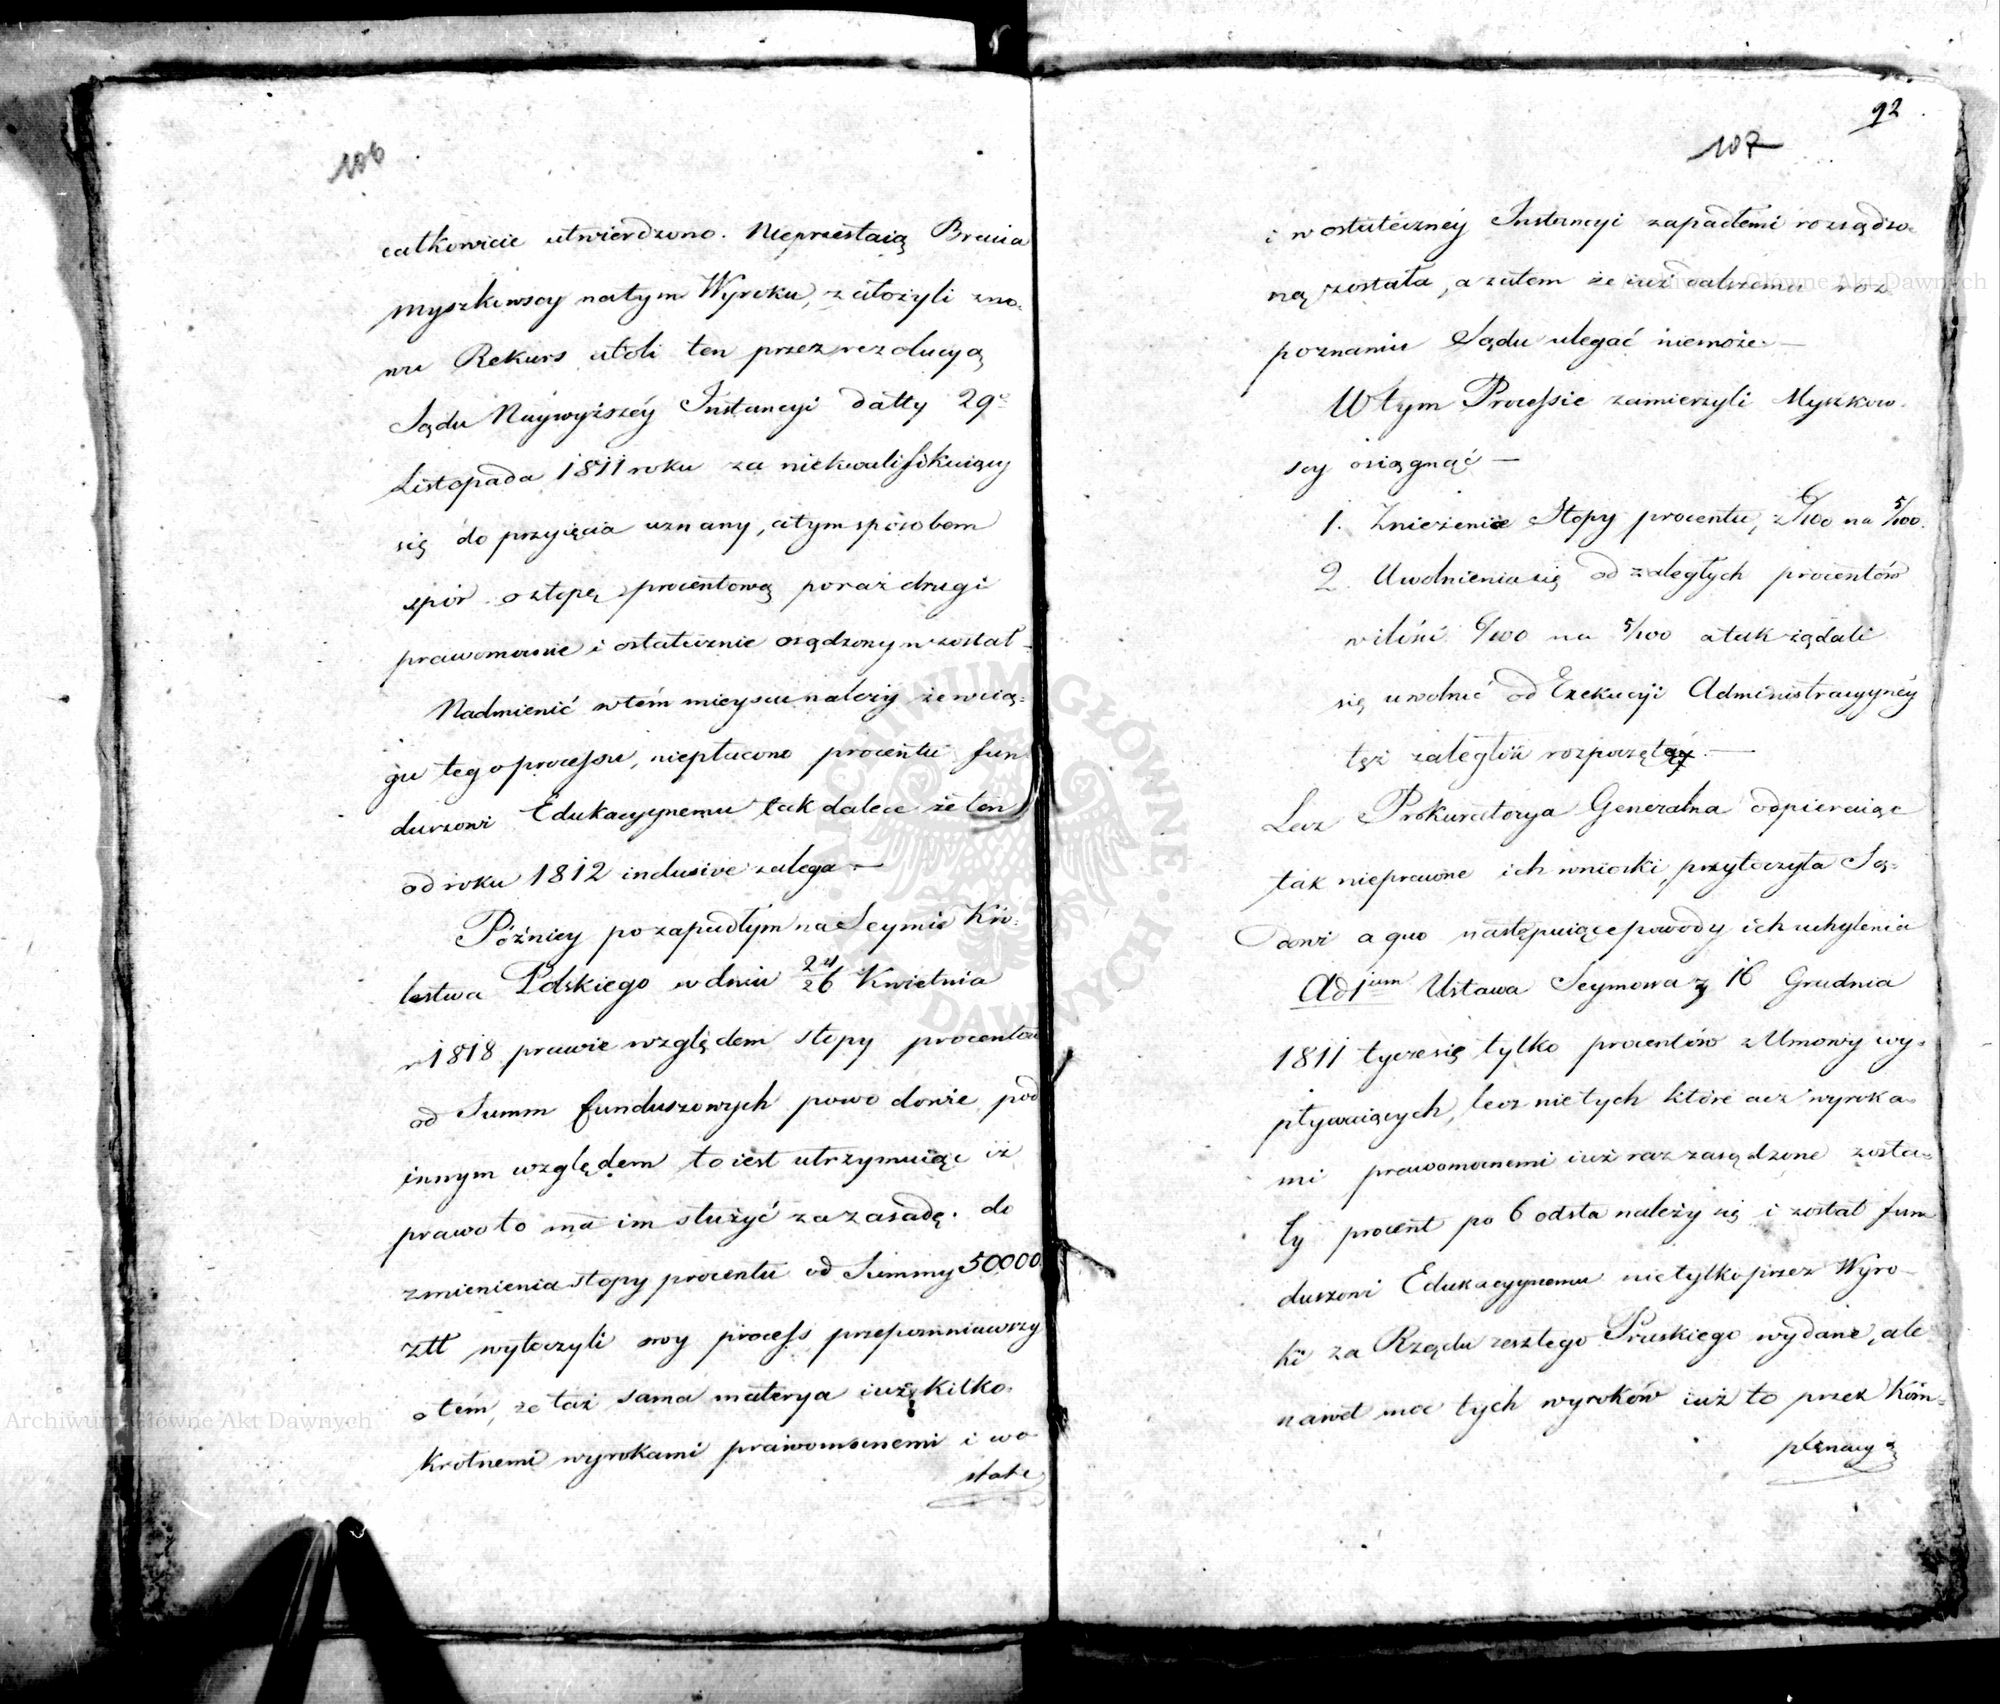 106
całkowicie utwierdzono. Nieprzestaią Bracia
Myszkowscy natym Wyroku, założyli zno-
wu Rekurs atoli ten przez rezolucyą
Sądu Naywyższéy Instancyi datty 29º
Listopada 1811 roku za niekwalifikuiący
się do przyięcia uznany, atym sposobem
spór o stopę procentową poraz drugi
prawomocnie i ostatecznie osądzony został -
Nadmienić wtém mieyscu należy że wcią-
gu tego processu, niepłacono procentu fun
duszowi Edukacyynemu tak dalece że ten
od roku 1812 inclusive zalega —
Późniey po zapadłym na Seymie Kró-
lestwa Polskiego w dniu 24/26 Kwietnia
r 1818 prawie względem stopy procentów
od Summ funduszowych powodowie pod
innym względem to iest utrzymuiąc iż
prawo to ma im służyć za zasadę do
zmienienia stopy procentu od Summy 50000
złł wytoczyli nowy process przepomniawszy
o tém, że taż sama materya iuż kilko-
krotnemi wyrokami prawomocnemi i wo
state
92
107
i w ostateczney Instancyi zapadłemi rozsądzo-
ną została, a zatem że iuż dalszemu roz
poznaniu Sądu ulegać niemoże —
W tym Processie zamierzyli Myszkow-
scy osiągnąć —
1. Zniżenie Stopy procentu, z 6/100 na 5/100.
2. Uwolnienia się od zaległych procentów
wilości 6/100 na 5/100 a tak żądali
się uwolnić od Exekucyi Administracyynéy
téż zaległości rozpoczętéy —
Lecz Prokuratorya Generalna odpieraiąc
tak nieprawne ich wnioski, przytoczyła Są-
dowi a quo następuiące powody ich uchylenia
Ad 1um Ustawa Seymowa z 16 Grudnia
1811 tycze się tylko procentów z Umowy wy-
pływaiących, lecz nie tych które acz wyroka-
mi prawomocnemi iuż raz zasądzone zosta-
ły procent po 6 odsta należy się i został fun
duszowi Edukacyynemu nie tylko przez Wyro-
ki za Rządu zeszłego Pruskiego wydane, ale
nawet moc tych wyroków iuż to przez Kom-
planacyą